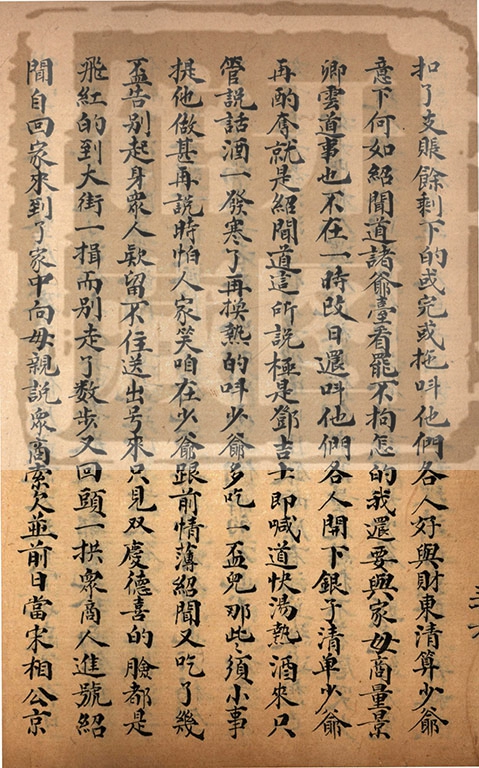 扣了支賬餘剩下的或完或拖叫他們各人好與財東清算少爺
意下何如紹聞道諸爺臺看罷不拘怎的我還要與家母商量景
卿雲道事也不在一時改日還叫他們各人開下銀子清单少爺
再酌奪就是紹聞道這所說極是鄧吉士即喊道快湯熱酒來只
管說話酒一發寒了再换熱的叫少爺多吃一盃兒那些須小事
提他做甚再說時怕人家笑咱在少爺跟前情薄紹聞又吃了幾
盃告别起身眾人欵留不住送出号來只見双慶德喜的臉都是
飛紅的到大街一揖而别走了数步又回頭一拱眾商人進號紹
聞自回家來到了家中向母親説眾商索欠並前日當宋相公京